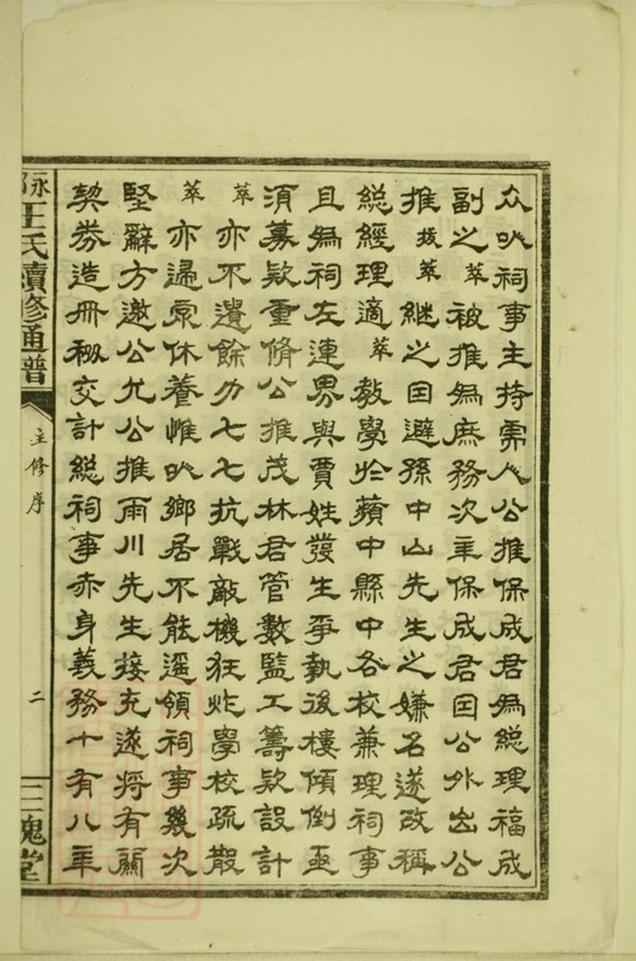 众以祠事主持需人公推保成君為總理福成
副之萃被推為庶務次年保成君因公外出公
推拔萃繼之因避孫中山先生之嫌名遂改稱
総經理適萃教學於蘋中縣中各校兼理祠事
且為祠左連界與賈姓發生爭執後樓傾倒亟
須募欵重脩公推茂林君管數監工籌欵設計
萃亦不遺餘力七七抗戰敵機狂炸學校疏散
萃亦還家休養惟以鄉居不能遥領祠事幾次
堅辭方邀公允公推雨川先生接充遂將有關
契券造冊移交計総祠事赤身義務十有八年
永邵王氏續修通譜
主修序
二
三槐堂